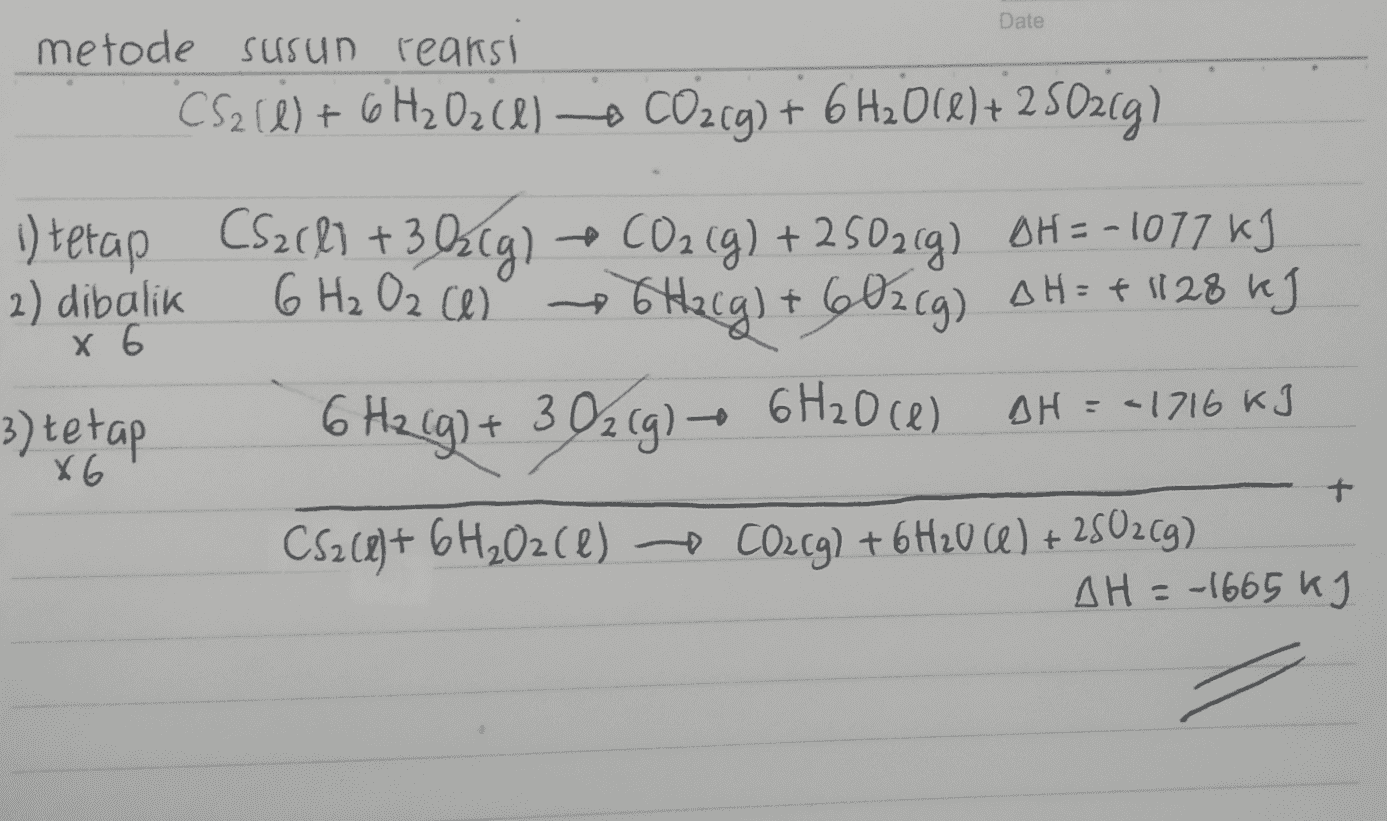 Date
metode susun reaksi
CS2(l) + 6H2O2(l) → CO2(g) + 6H2O(l) + 2SO2(g)
1) tetap CS2(l) + 3O2(g) → CO2(g) + 2SO2(g) ΔH = -1077 kJ
2) dibalik 6 H2O2(l) → 6H2(g) + 6O2(g) ΔH = +1128 kJ
x 6
3) tetap 6 H2(g) + 3O2(g) → 6H2O(l) ΔH = -1716 kJ
x6
+
CS2(l) + 6H2O2(l) → CO2(g) + 6H2O(l) + 2SO2(g)
ΔH = -1665 kJ